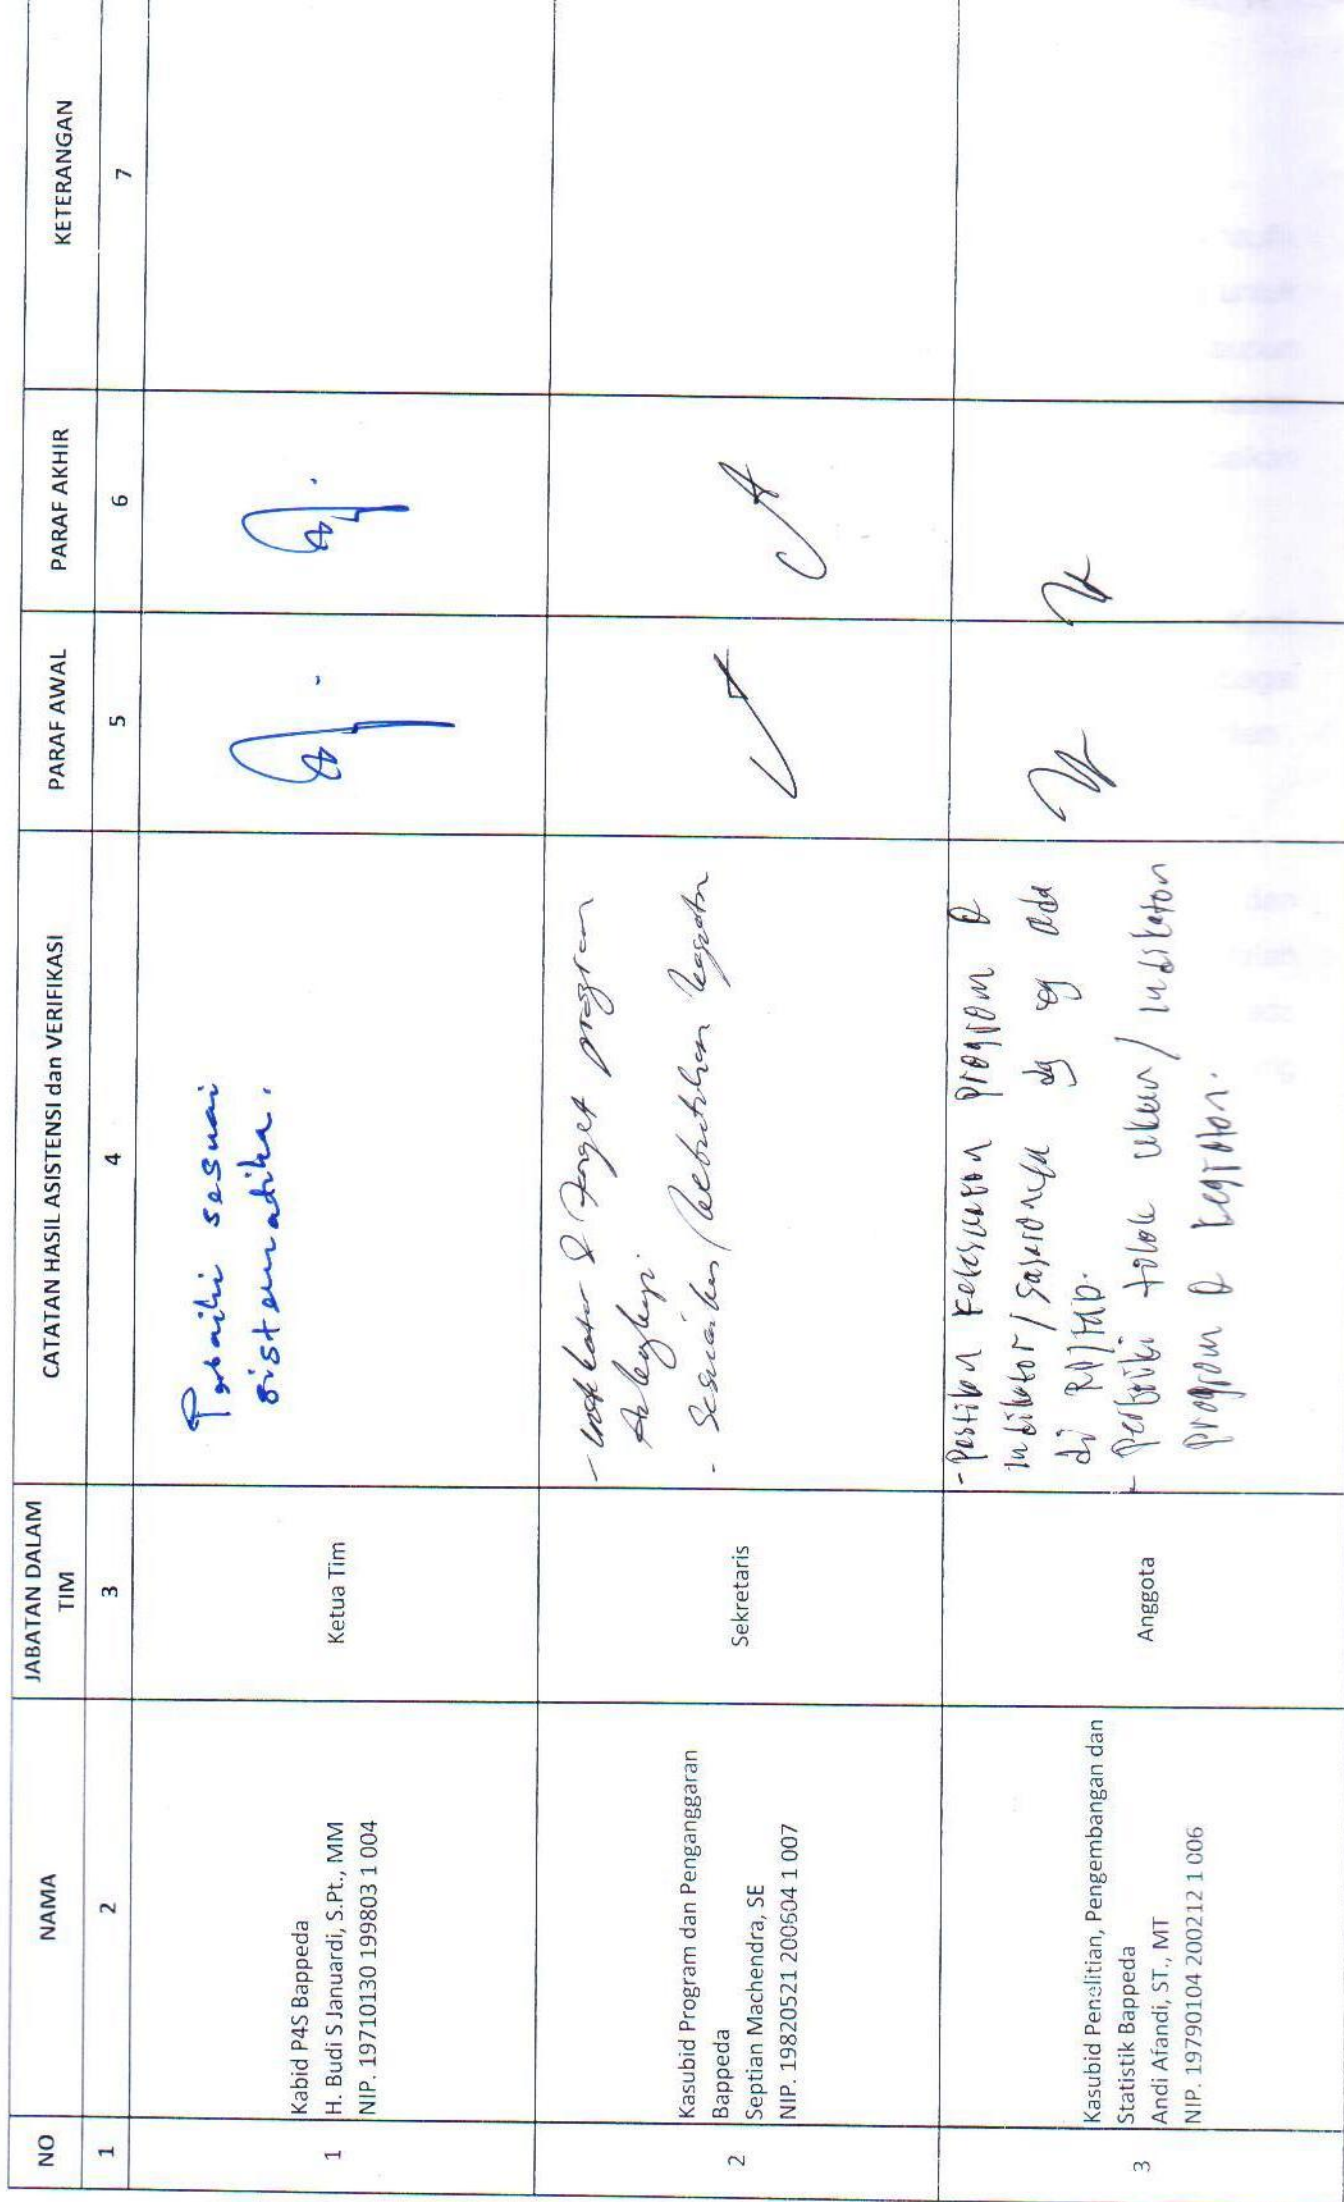 NO
NAMA
JABATAN DALAM
TIM
CATATAN HASIL ASISTENSI dan VERIFIKASI
PARAF AWAL
PARAF AKHIR
KETERANGAN
1
2
3
4
5
6
7
1
Kabid P4S Bappeda
H. Budi S Januardi, S.Pt., MM
NIP. 19710130 199803 1 004
Ketua Tim
Perbaiki sesuai
sistematika.
2
Kasubid Program dan Penganggaran
Bappeda
Septian Machendra, SE
NIP. 19820521 200604 1 007
Sekretaris
- Indikator & target program
dilengkapi
- Sesuaikan/kebutuhan kegiatan
3
Kasubid Penelitian, Pengembangan dan
Statistik Bappeda
Andi Afandi, ST., MT
NIP. 19790104 200212 1 006
Anggota
- Pastikan kesesuaian program &
indikator/sasarannya dg yg ada
di
- perbaiki tolok ukur/indikator
program & kegiatan.